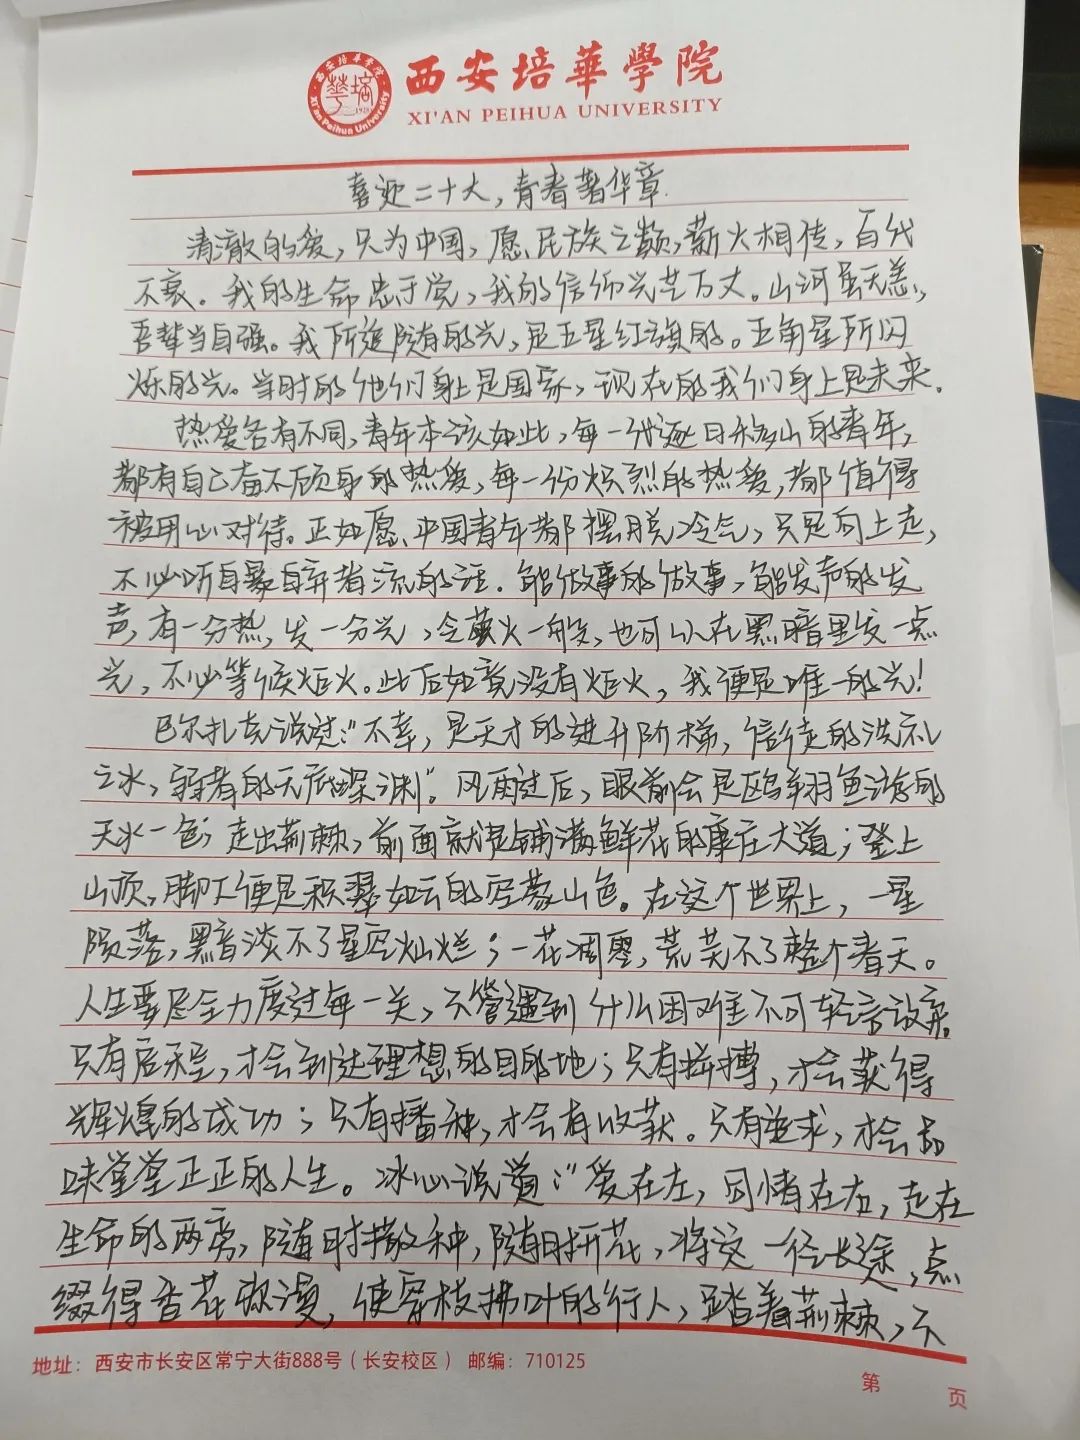 西安培華學院
XI'AN PEIHUA UNIVERSITY
西安培華學院
Xi'an Peihua University
1928
喜迎二十大，青春著华章.
清澈的爱，只为中国，愿民族之颜，薪火相传，百代
不衰。我的生命忠于党，我的信仰光芒万丈。山河虽无恙，
吾辈当自强。我所追随的光，是五星红旗的。五角星所闪
烁的光。当时的他们身上是国家，现在的我们身上是未来.
热爱各有不同，青年本该如此，每一代逐日移山的青年，
都有自己奋不顾身的热爱，每一份炽烈的热爱，都值得
被用心对待。正如愿中国青年都摆脱冷气，只是向上走，
不必听自暴自弃者流的话. 能做事的做事，能发声的发
声，有一分热，发一分光，令萤火一般，也可以在黑暗里发一点
光，不必等候炬火。此后如竟没有炬火，我便是唯一的光！
巴尔扎克说过：“不幸，是天才的进升阶梯，信徒的洗礼
之水，弱者的无底深渊”。风雨过后，眼前会是鸥翔鱼游的
天水一色；走出荆棘，前面就是铺满鲜花的康庄大道；登上
山顶，脚下便是积翠如云的空蒙山色。在这个世界上，一星
陨落，黯淡不了星空灿烂；一花凋零，荒芜不了整个春天。
人生要尽全力度过每一关，不管遇到什么困难不可轻言放弃。
只有启程，才会到达理想的目的地；只有拼搏，才会获得
辉煌的成功；只有播种，才会有收获。只有追求，才会品
味堂堂正正的人生。冰心说道：“爱在左，同情在右，走在
生命的两旁，随时撒种，随时开花，将这一径长途，点
缀得香花弥漫，使穿枝拂叶的行人，踏着荆棘，不
地址：西安市长安区常宁大街888号（长安校区） 邮编：710125
第 页